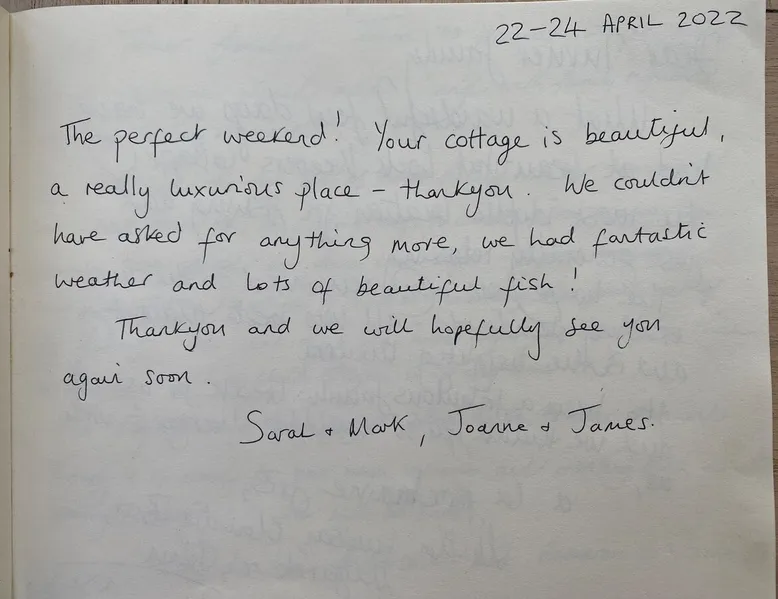 22-24 APRIL 2022
The perfect weekend! Your cottage is beautiful,
a really luxurious place - thankyou. We couldn't
have asked for anything more, we had fantastic
weather and lots of beautiful fish!
Thankyou and we will hopefully see you
again soon.
Sarah + Mark, Joanne + James.